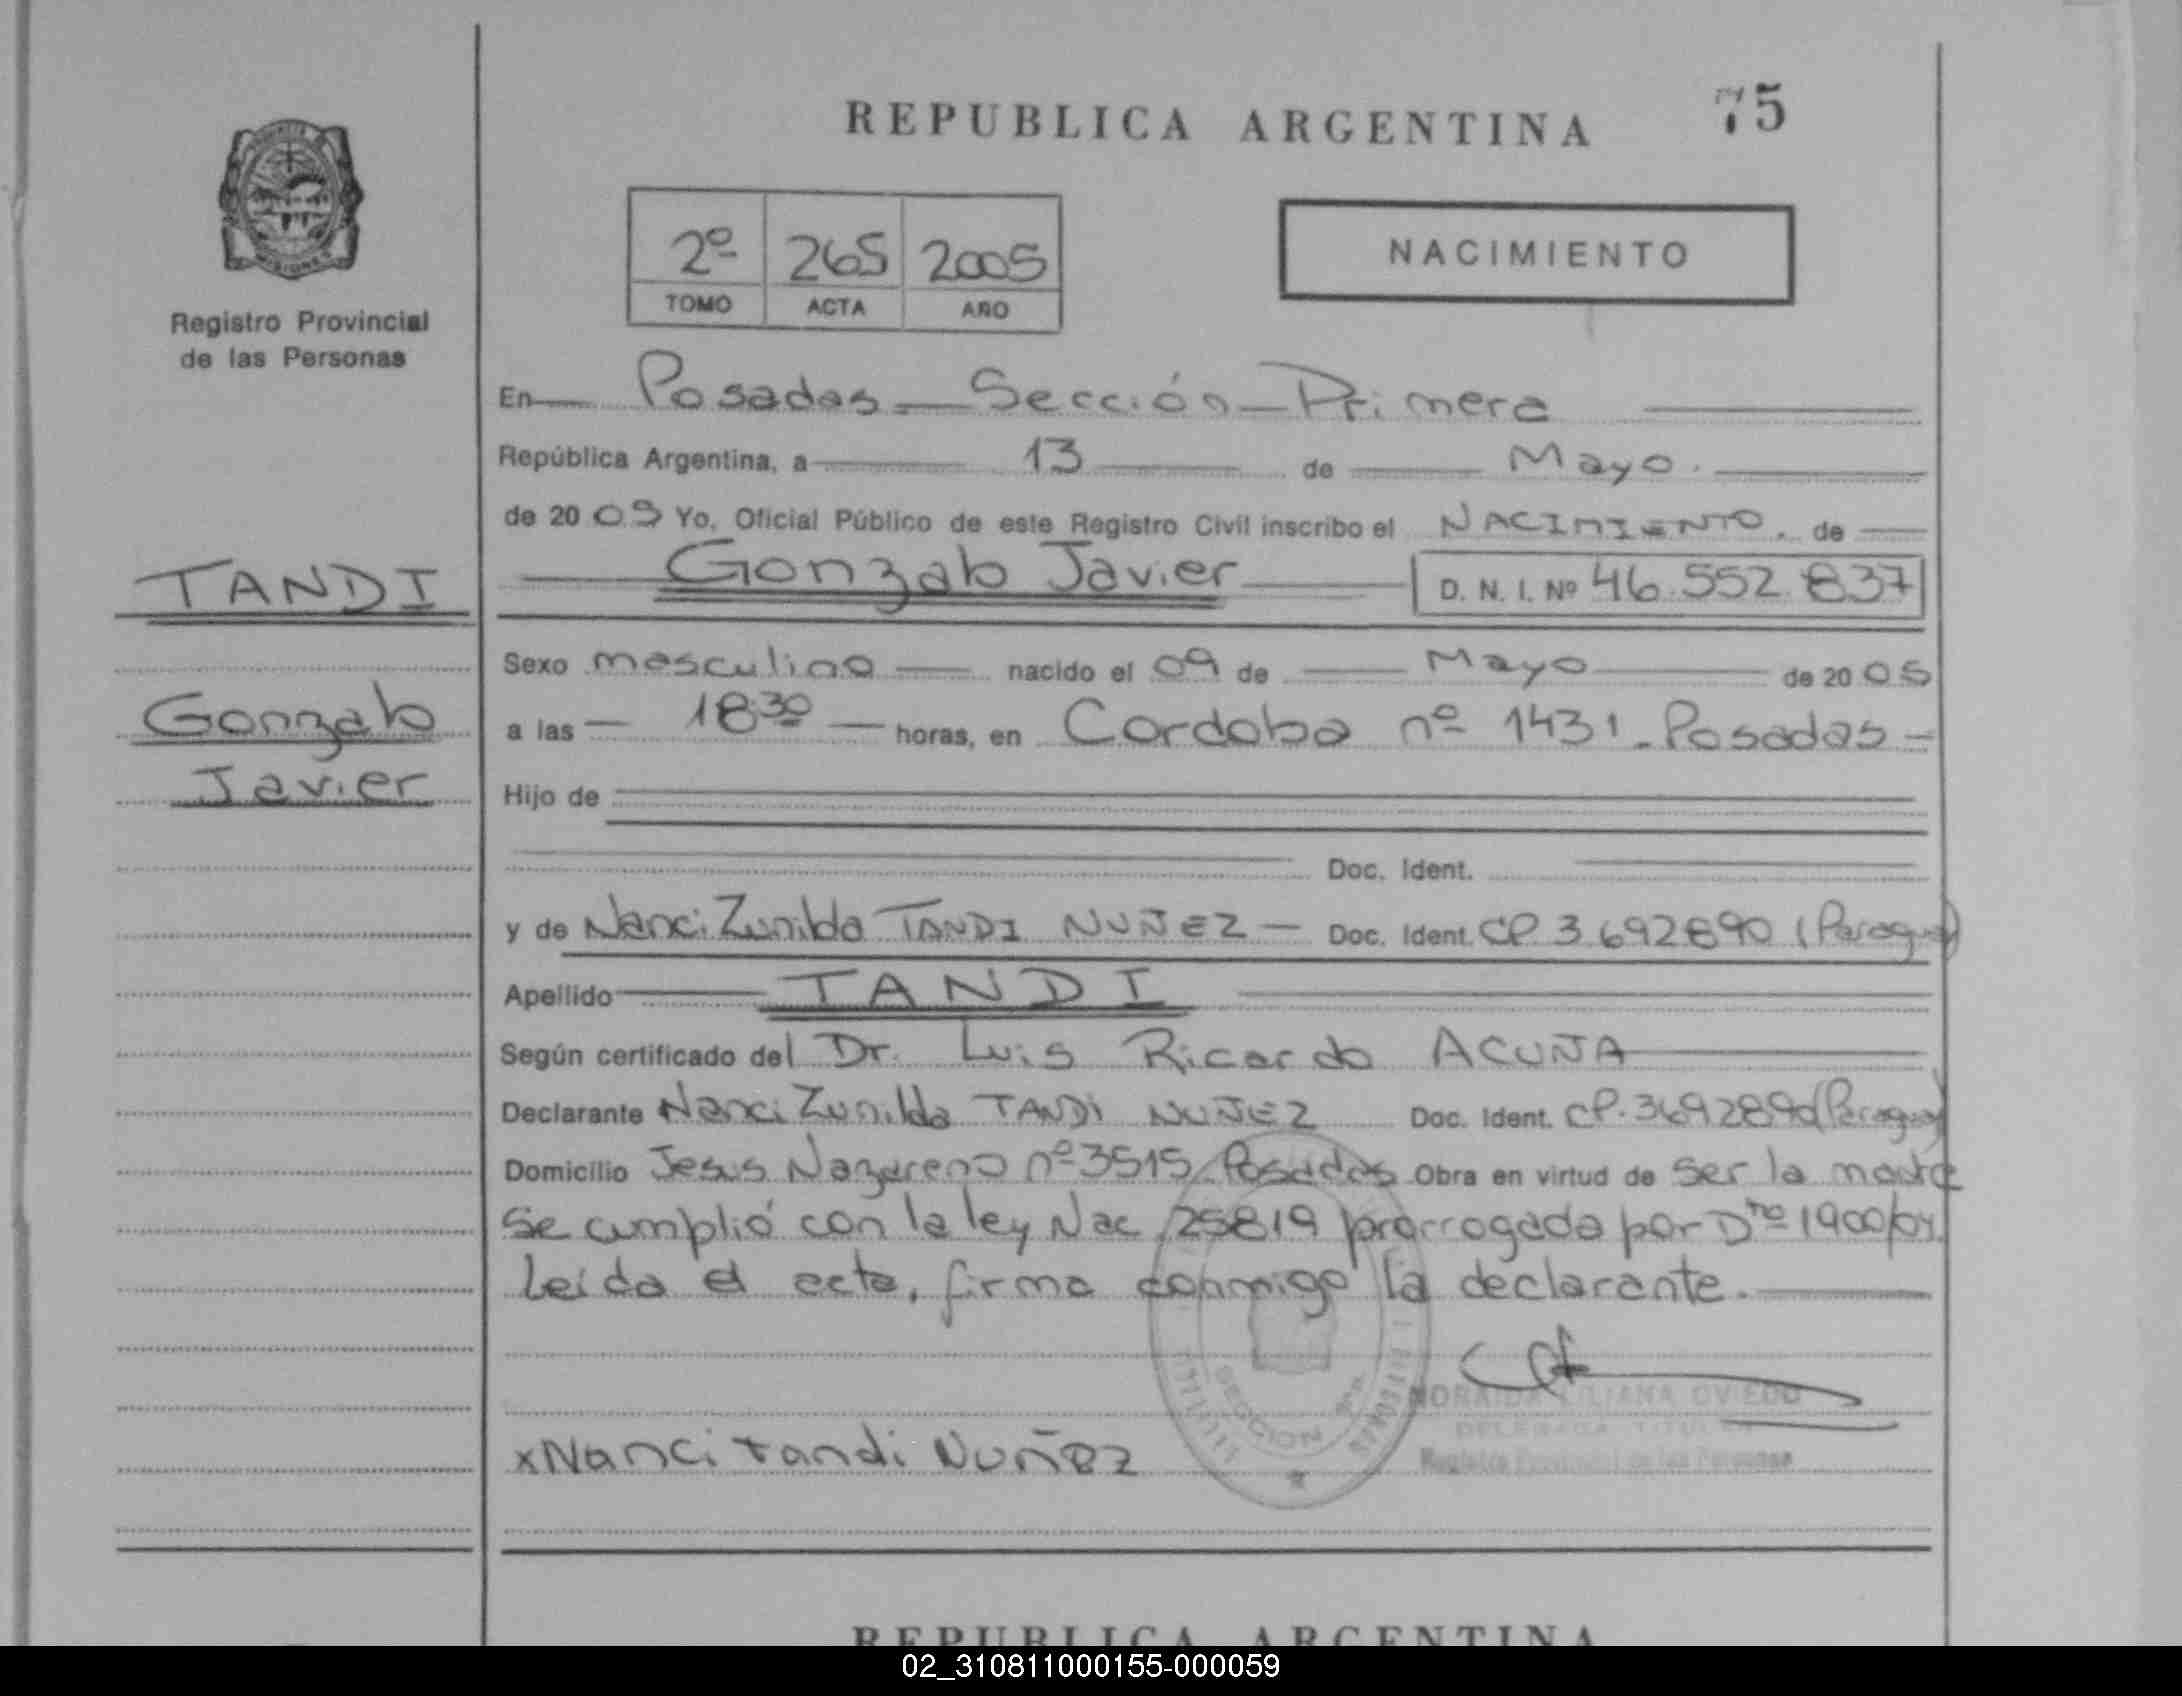 REPUBLICA ARGENTINA 75
2º 265 2005
TOMO ACTA AÑO
NACIMIENTO
MISIONES
Registro Provincial
de las Personas
TANDI
Gonzalo
Javier
En Posadas - Sección - Primera
República Argentina, a 13 de Mayo.
de 2005 Yo, Oficial Público de este Registro Civil inscribo el NACIMIENTO. de
Gonzalo Javier D. N. I. Nº 46.552.837
Sexo masculino nacido el 09 de Mayo de 2005
a las 18:30 horas, en Cordoba nº 1431 - Posadas -
Hijo de
Doc. Ident.
y de Nanci Zunilda TANDI NUÑEZ - Doc. Ident. CP 3692890 (Paraguay)
Apellido TANDI
Según certificado del Dr. Luis Ricardo ACUÑA
Declarante Nanci Zunilda TANDI NUÑEZ Doc. Ident. CP. 3692890 (Paraguay)
Domicilio Jesus Nazareno nº 3515 Posadas Obra en virtud de ser la madre
Se cumplió con la ley Nac. 25819 prorrogada por Dto 1900/04.
Leída el acta, firma conmigo la declarante.
NORAIDA LILIANA OVIEDO
DELEGADA TITULAR
Registro Provincial de las Personas
SECCION
x Nanci tandi Nuñez
REPUBLICA ARGENTINA
02_310811000155-000059